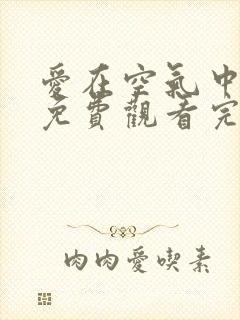 愛在空氣中
免費觀看完
肉肉愛喫素